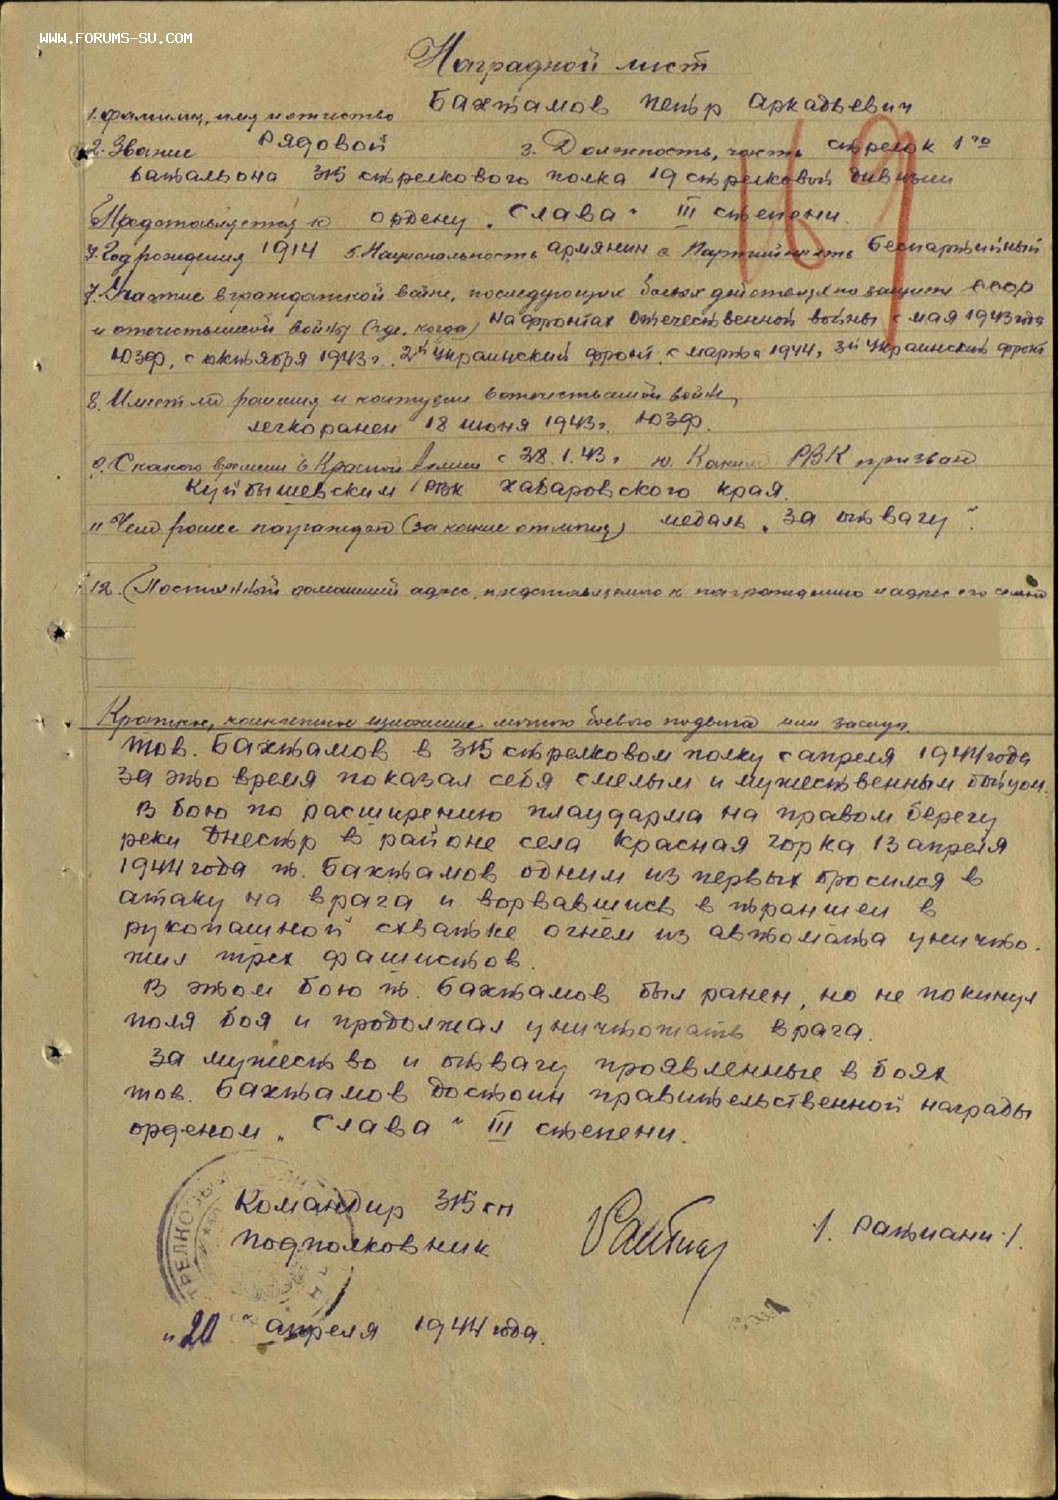 WWW.FORUMS-SU.COM
Наградной лист
1. Фамилия, имя и отчество Бахтамов Петр Аркадьевич
2. Звание Рядовой 3. Должность, часть стрелок 1го
батальона 315 стрелкового полка 19 стрелковой дивизии
Представляется к ордену „Слава" III степени.
4. Год рождения 1914 5. Национальность армянин 6 Партийность Беспартийный
7. Участие в гражданской войне, последующих боевых действиях по защите СССР
и отечественной войне (где, когда) на фронтах отечественной войны с мая 1943 года
ЮЗФ, с октября 1943 г. 2й Украинский фронт, с марта 1944 г. 3й Украинский фронт
8. Имеет ли ранения и контузии в отечественной войне
легко ранен 18 июня 1943 г. ЮЗФ.
9. С какого времени в Красной Армии с 28.1.43 г. 10. Каким РВК призван
Куйбышевским РВК Хабаровского края.
11 Чем ранее награжден (за какие отличия) медаль „За отвагу".
12. Постоянный домашний адрес, представляемого к награждению и адрес его семьи
Краткое, конкретное изложение личного боевого подвига или заслуг.
Тов. Бахтамов в 315 стрелковом полку с апреля 1944 года
за это время показал себя смелым и мужественным бойцом.
В бою по расширению плацдарма на правом берегу
реки Днестр в районе села Красная горка 13 апреля
1944 года т. Бахтамов одним из первых бросился в
атаку на врага и ворвавшись в траншеи в
рукопашной схватке огнём из автомата уничто-
жил трех фашистов.
В этом бою т. Бахтамов был ранен, но не покинул
поля боя и продолжал уничтожать врага.
За мужество и отвагу проявленные в боях
тов. Бахтамов достоин правительственной награды
орденом „Слава" III степени.
Командир 315 сп
подполковник /. Ратмани ./.
„20" апреля 1944 года.